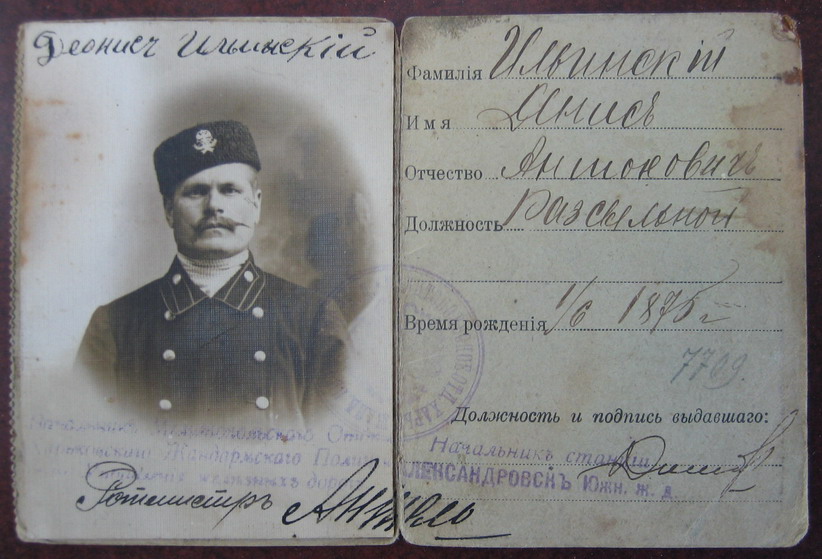 Деонисъ Ильинскій
Начальникъ Мелитопольскаго
Жандармскаго
Управления желѣзныхъ дорогъ
Ротмистръ
Фамилія Ильинскій
Имя
Отчество Антоновичъ
Должность Разсыльной
Время рожденія 1/6 1875 г
7709.
Должность и подпись выдавшаго:
Начальникъ станціи
АЛЕКСАНДРОВСКЪ Южн. ж. д.